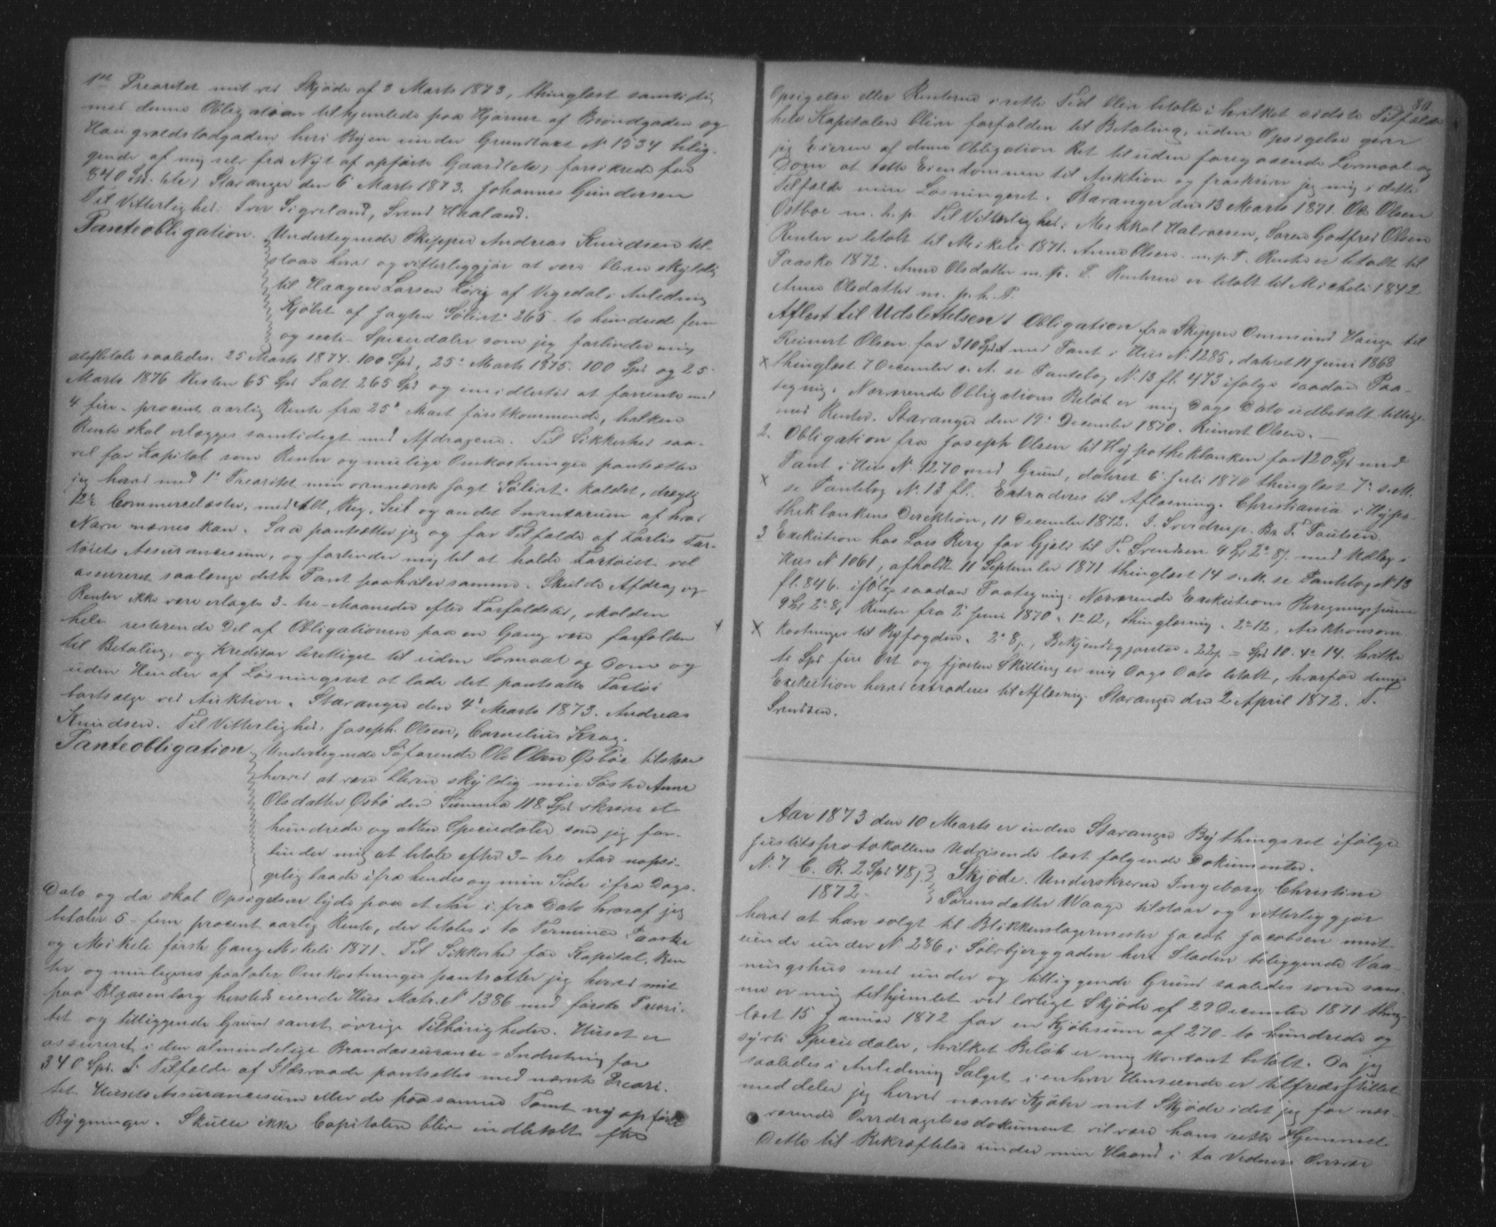 1ste Prioritet mit ved Skjøde af 3 Marts 1873, thinglæst samtidig
med denne Obligation tilhjemlede paa Hjørnet af Brøndgaden og
Haugvaldstadgaden heri Byen under Grundtaxt No 1534 belig-
gende af mig selv fra Nyt af opførte Gaard (etc) forsikrede for
840 Spd. (etc) Stavanger den 6 Marts 1873. Johannes Gundersen
Til Vitterlighed: Iver Sigveland, Svend Haaland.
Panteobligation. Undertegnede Skipper Andreas Knudsen til-
staar herved og vitterliggjør at være bleven skyldig
til Haagen Larsen af Vigedal i Anledning
Kjøbet af Jagten Sølivet 265 to hundred fem
og sexti Speciedaler som jeg forbinder mig
at betale saaledes: 25 Marts 1874. 100 Spd, 25 Marts 1875. 100 Spd og 25
Marts 1876 Resten 65 Spd Salt 265 Spd og imidlertid at forrente med
4 fire procent aarlig Rente fra 25 Mart førstkommende, hvilken
Rente skal erlægges samtidigt med Afdragene. Til Sikkerhed saa-
vel for Kapital som Renter og mulige Omkostninger pantsætter
jeg herved med 1 Prioritet min ovennævnte Jagt Sølivet kaldet, drægtig
12½ Commercelæster, med Alt, Rig, Seil og andet Inventarium af hvad
Navn nævnes kan. Saa pantsætter jeg og for Tilfælde af Forlis Far-
tøiets Assurancesum, og forbinder mig til at holde Fartøiet vel
assureret saalænge dette Pant paahviler samme. Skulde Afdrag og
Renter ikke være erlagte 3 - tre - Maaneder efter Forfaldstid, skal den
hele resterende Del af Obligationen paa en Gang være forfalden
til Betaling, og Kreditor berettiget til uden Lovmaal og Dom og
uden Hinder af Løsningsret at lade det pantsatte Fartøi
bortsælge ved Auktion. Stavanger den 4 Marts 1873. Andreas
Knudsen. Til Vitterlighed: Joseph Olsen, Cornelius Krag.
Panteobligation Undertegnede Søfarende Ole Olsen Østbøe tilstaar
herved at være bleven skyldig min Søster Anna
Olsdatter Østbø den Summa 118 Spd skriver et
hundrede og atten Speciedaler som jeg for-
binder mig at betale efter 3 - tre Aar uopsi-
gelig baade ifra hendes og min Side ifra Dags
Dato og da skal Opsigelsen lyde paa et Aar i fra Dato hvoraf jeg
betaler 5 - fem procent aarlig Rente, der betales i to Terminer Paaske
og Mikeli første Gang Mikeli 1871. Til Sikkerhed for Kapital, Ren
ter og muligens paaløbne Omkostninger pantsætter jeg herved mit
paa Blaasenborg hersteds eiende Huus Matr. No 1386 med første Priori-
tet og tilliggende Grund samt øvrige Tilhørigheder. Huset er
assureret i den almindelige Brandassurance - Indretning for
340 Spd. I Tilfælde af Ildsvaade pantsættes med nævnte Priori-
tet Husets Assurancesum eller de paa samme Tomt ny opførte
Bygninger. Skulle ikke Capitalen blive indbetalt efter

30
Opsigelse eller Renterne i rette Tid blive betalte i hvilket sidste Tilfælde
hele Kapitalen bliver forfalden til Betaling, uden Opsigelse giver
jeg Eieren af denne Obligation Ret til uden foregaaende Lovmaal og
Dom at sætte Eiendommen til Auktion og fraskriver jeg mig i dette
Tilfælde min Løsningsret. Stavanger den 13 Marts 1871. Ole Olsen
Østbøe m. h. p. Til Vitterlighed: Halvorsen, Søren Godtfred Olsen
Renter er betalt til Mikeli 1871. Anna Olsen m. p. P. Renter er betalt til
Paaske 1872. Anna Olsdatter m. p. P. Renterne er betalt til Micheli 1872
Anna Olsdatter m. p. h. P.
Aflæst til Udslettelse: 1 Obligation fra Skipper Ommund Hauge til
Reinert Olsen for 310 Spd med Pant i Hus No 1285, dateret 11 Juni 1868
x thinglæst 7 December s. A. se Pantebog No 13 fl. 473 ifølge saadan Paa-
tegning: Nærværende Obligations Beløb er mig Dags Dato udbetalt tillige
med Renter. Stavanger den 19 December 1870. Reinert Olsen. —
2. Obligation fra Joseph Olsen til Hypothekbanken for 120 Spd med
Pant i Hus No 1270 med Grund, dateret 6 Juli 1870 thinglæst 7 s. M.
x se Pantebog No 13 fl. Extraderes til Aflæsning. Christiania i Hypo-
thekbankens Direktion, 11 December 1872. J. Sverdrup. Paulsen.
3 Exekution hos Lars Berg for Gjeld til P. Svendsen 9 Spd 2 8 med Udlæg i
Hus No 1061, afholdt 11 September 1871 thinglæst 14 s. M. se Pantebog No 13
fl. 846. ifølge saadan Paategning: Nærværende Exekutions Beregningssum
x 9 Spd 2 8 Renter fra 2 Juni 1870. 1 12, thinglæsning. 2 12, Auktionsom
x kostninger til Byfogden. 2 8, Bekjendtgjørelse. 22 = Spd 10. 4 14. hvilke
ti Spd fire Ort og fjorten Skilling er mig Dags Dato betalt, hvorfor denne
Exekution herved extraderes til Aflæsning. Stavanger den 2 April 1872. P.
Svendsen.
Aar 1873 den 10 Marts er inden Stavanger Bythingsret ifølge
Justitsprotokollens Udvisende læst følgende Dokumenter.
N. 7 C. R. 2 Spd 48 Skjøde. Underskrevne Ingeborg Christine
1872. Sørensdatter Waage tilstaar og vitterliggjør
herved at have solgt til Blikkenslagermester Jacob Jacobsen mit
eiende under No 286 i Sølvbjerggaden her i Staden beliggende Vaa-
ningshus med under og tilliggende Grund saaledes som sam-
me er mig tilhjemlet ved lovligt Skjøde af 29 December 1871 thing-
læst 15 Januar 1872 for en Kjøbesum af 270 to hundrede og
sytti Speciedaler, hvilket Beløb er mig kontant betalt. Da jeg
saaledes i Anledning Salget i enhver Henseende er tilfredsstillet
meddeler jeg herved nævnte Kjøber mit Skjøde idet jeg for nær-
værende Overdragelsesdokument vil være hans rette Hjemmel
Dette til Bekræftelse under min Haand i to Vidners Overvær